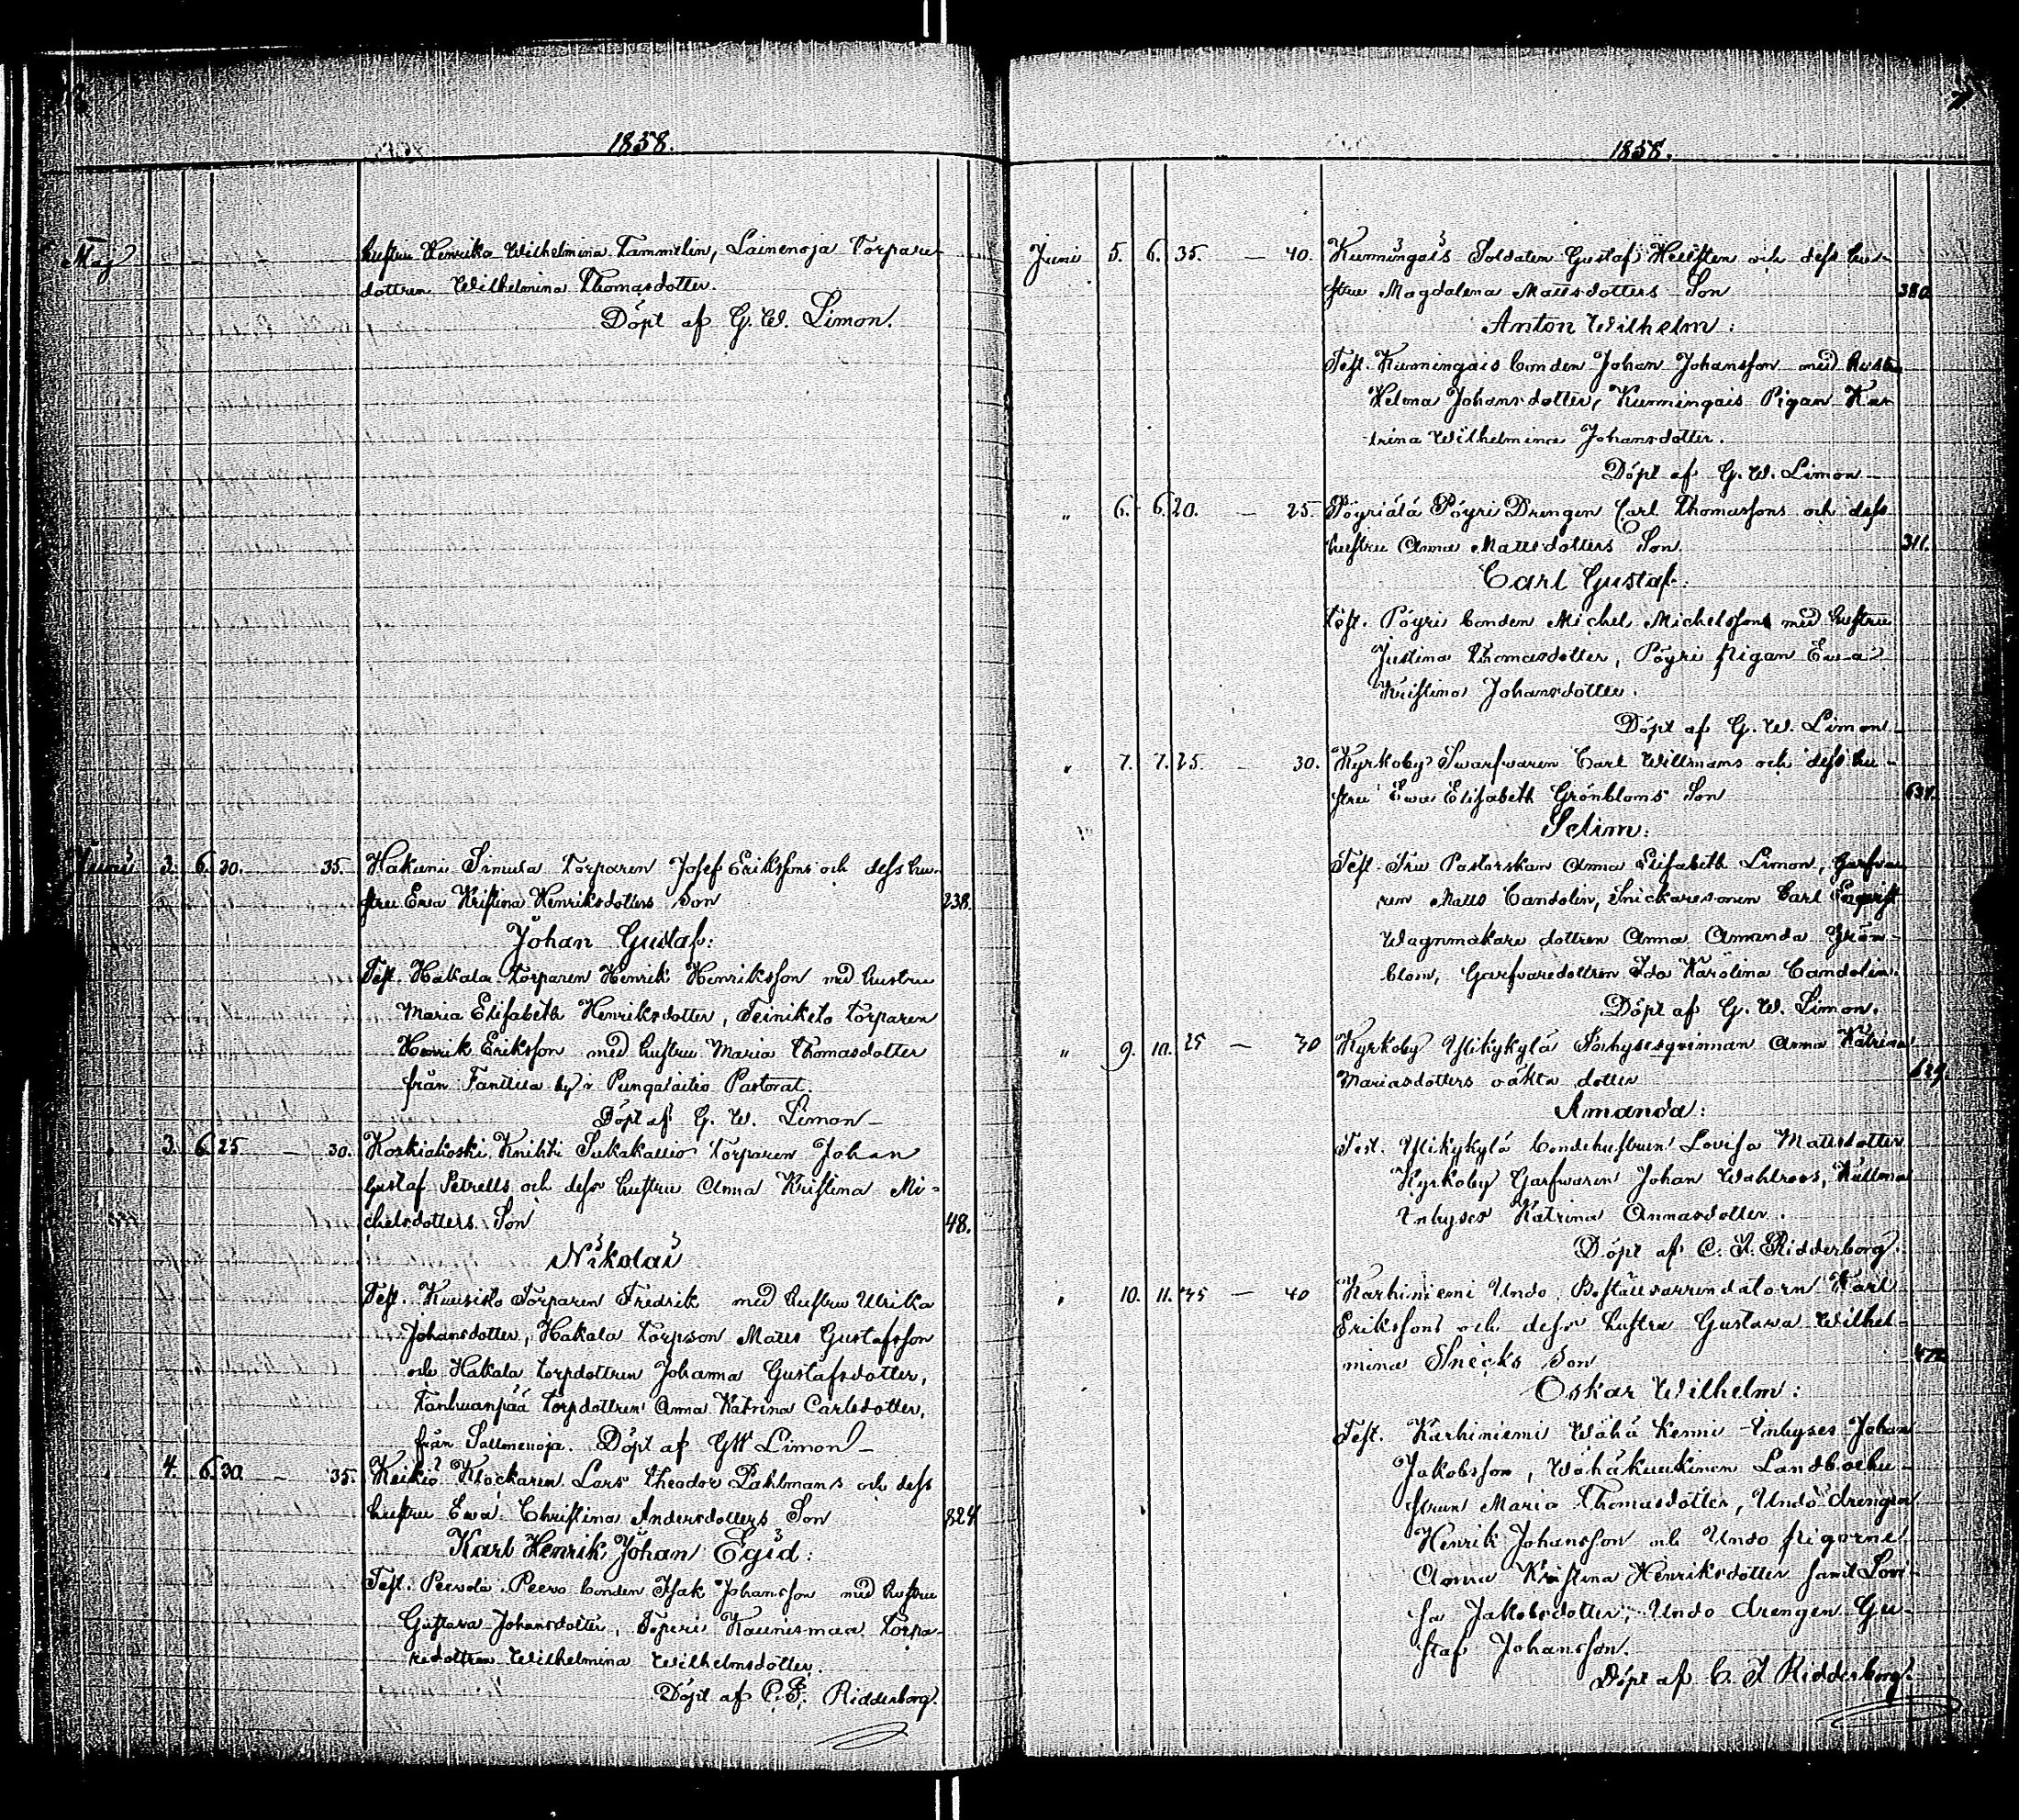 1858.
Maj hustru Henrika Wilhelmina Tammelin, Lainenoja Torpare
dottren Wilhelmina Thomasdotter.
Döpt af G. W. Limon.
Juni 3. 6. 30. 35. Hakuni Simula torparen Josef Erikssons och dess hu-
stru Ewa Kristina Henriksdotters Son 238.
Johan Gustaf:
Test. Hakala torparen Henrik Henriksson med hustru
Maria Elisabeth Henriksdotter, torparen
Henrik Eriksson med hustru Maria Thomasdotter
från by i Pungalaitio Pastorat.
Döpt af G. W. Limon
3. 6. 25 — 30. Koskiakoski Knihti Sukakallio torparen Johan
Gustaf Petrells och dess hustru Anna Kristina Mi-
chelsdotters Son 48.
Nikolai
Test. Kuusisto Torparen Fredrik med hustru Ulrika
Johansdotter, Hakala torpson Matts Gustafsson
och Hakala torpdottren Johanna Gustafsdotter,
Tanhuanpää torpdottren Anna Katrina Carlsdotter,
från Sallmenoja. Döpt af GW Limon —
4. 6. 30. — 35. Keikiö Klockaren Lars Theodor Pahlmans och dess
hustru Ewa Christina Andersdotters Son 824
Karl Henrik Johan Egid:
Test. Peevola Peevo bonden Isak Johansson med hustru
Gustava Johansdotter, Kaunismaa torpa-
redottren Wilhelmina Wilhelmsdotter.
Döpt af C. F. Ridderborg.
7
1858.
Juni 5. 6. 35. — 40. Kunningais Soldaten Gustaf Hellsten och dess hu-
stru Magdalena Mattsdotters Son 380
Anton Wilhelm:
Test. Kunningais bonden Johan Johansson med hustru
Helena Johansdotter, Kunningais Pigan Ka-
trina Wilhelmina Johansdotter.
Döpt af G. W. Limon
" 6. 6. 20. — 25. Pöyriälä Pöyri Drengen Carl Thomassons och dess
hustru Anna Mattsdotters Son 311.
Carl Gustaf:
Test. Pöyri bonden Michel Michelssons med hustru
Justina Thomasdotter, Pöyri pigan Ewa
Kristina Johansdotter.
Döpt af G. W. Limon
" 7. 7. 25. — 30. Kyrkoby Swarfwaren Carl Willmans och dess hu-
stru Ewa Elisabeth Grönbloms Son 634.
Selim:
Test. Fru Pastorskan Anna Elisabeth Limon, Garfwa-
ren Matts Candolin, Snickaresonen Carl
Wagnmakare dottren Anna Amanda Grön-
blom, Garfwaredottren Ida Karolina Candolin.
Döpt af G. W. Limon.
" 9. 10. 25 — 30 Kyrkoby Ylikykylä Inhysesqvinnan Anna Katrina
Mariasdotters oäkta dotter 629
Amanda:
Test. Ylikykylä bondehustrun Lovisa Mattsdotter
Kyrkoby Garfwaren Johan Wahlroos,
Inhyses Katrina Annasdotter.
Döpt af C. F. Ridderborg.
" 10. 11. 35 — 40 Karhiniemi Undo Boställsarrendatorn Karl
Erikssons och dess hustru Gustava Wilhel-
mina Snecks Son
Oskar Wilhelm:
Test. Karhiniemi Wähä Kenni Inhyses Johan
Jakobsson, Landbohu-
strun Maria Thomasdotter, Undo drengen
Henrik Johansson och Undo pigorne
Anna Kristina Henriksdotter samt Lovi-
sa Jakobsdotter, Undo drengen Gu-
staf Johansson.
Döpt af C. F. Ridderborg.